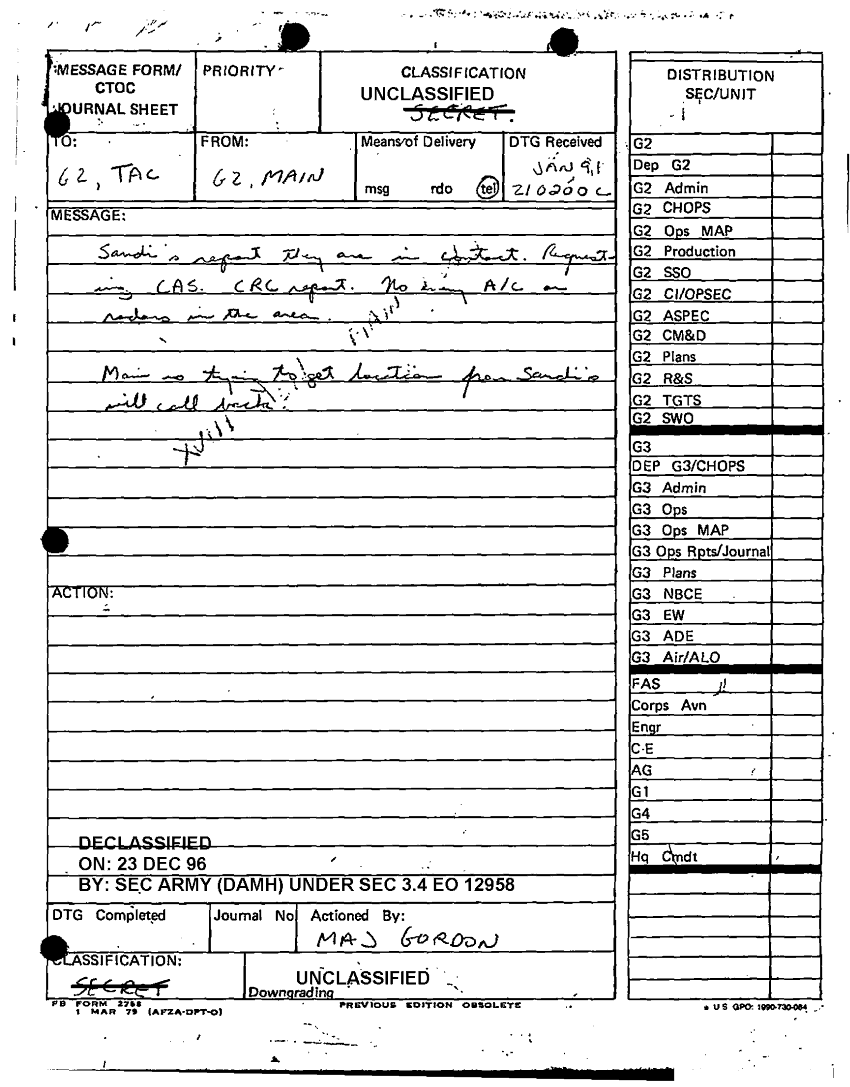 MESSAGE FORM/
CTOC
JOURNAL SHEET
PRIORITY
CLASSIFICATION
UNCLASSIFIED
SECRET
TO:
G2, TAC
FROM:
G2, MAIN
Means of Delivery
msg rdo tel
DTG Received
JAN 91
210200C
MESSAGE:
Sandi's report they are in contact. Request-
ing CAS. CRC report. No enemy A/C on
radars in the area.
Main is trying to get location from Sandi's
will call back.
XVIII MAIN
ACTION:
DECLASSIFIED
ON: 23 DEC 96
BY: SEC ARMY (DAMH) UNDER SEC 3.4 EO 12958
DTG Completed
Journal No
Actioned By:
MAJ GORDON
CLASSIFICATION:
SECRET
UNCLASSIFIED
Downgrading
FB FORM 2758
1 MAR 79 (AFZA-DPT-O)
PREVIOUS EDITION OBSOLETE
DISTRIBUTION
SEC/UNIT
G2
Dep G2
G2 Admin
G2 CHOPS
G2 Ops MAP
G2 Production
G2 SSO
G2 CI/OPSEC
G2 ASPEC
G2 CM&D
G2 Plans
G2 R&S
G2 TGTS
G2 SWO
G3
DEP G3/CHOPS
G3 Admin
G3 Ops
G3 Ops MAP
G3 Ops Rpts/Journal
G3 Plans
G3 NBCE
G3 EW
G3 ADE
G3 Air/ALO
FAS
Corps Avn
Engr
C-E
AG
G1
G4
G5
Hq Cmdt
U S GPO: 1990-730-084